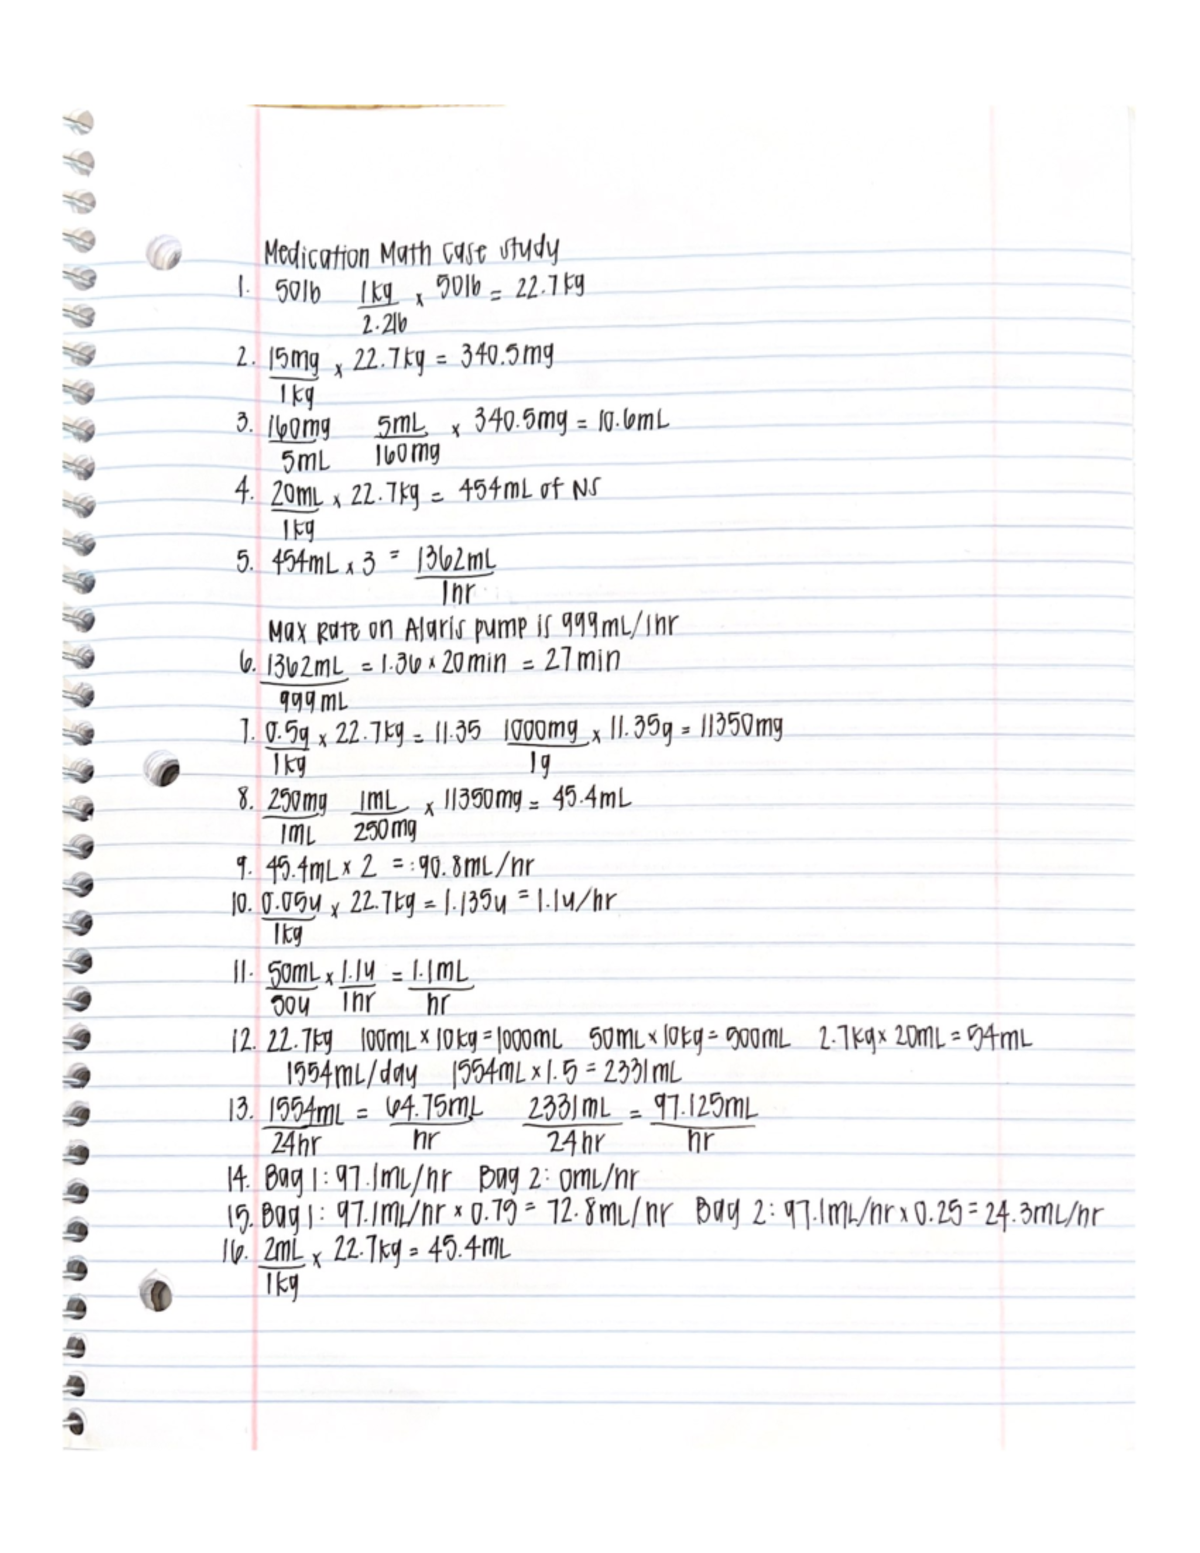 Medication Math Case Study
1. 50lb 1kg/2.2lb x 50lb = 22.7kg
2. 15mg/1kg x 22.7kg = 340.5mg
3. 160mg/5mL 5mL/160mg x 340.5mg = 10.6mL
4. 20mL/1kg x 22.7kg = 454mL of NS
5. 454mL x 3 = 1362mL/1hr
Max Rate on Alaris pump is 999mL/1hr
6. 1362mL/999mL = 1.36 x 20min = 27min
7. 0.5g/1kg x 22.7kg = 11.35 1000mg/1g x 11.35g = 11350mg
8. 250mg/1mL 1mL/250mg x 11350mg = 45.4mL
9. 45.4mL x 2 = 90.8mL/hr
10. 0.05u/1kg x 22.7kg = 1.135u = 1.1u/hr
11. 50mL/50u x 1.1u/1hr = 1.1mL/hr
12. 22.7kg 100mL x 10kg = 1000mL 50mL x 10kg = 500mL 2.7kg x 20mL = 54mL
1554mL/day 1554mL x 1.5 = 2331mL
13. 1554mL/24hr = 64.75mL/hr 2331mL/24hr = 97.125mL/hr
14. Bag 1: 97.1mL/hr Bag 2: 0mL/hr
15. Bag 1: 97.1mL/hr x 0.75 = 72.8mL/hr Bag 2: 97.1mL/hr x 0.25 = 24.3mL/hr
16. 2mL/1kg x 22.7kg = 45.4mL